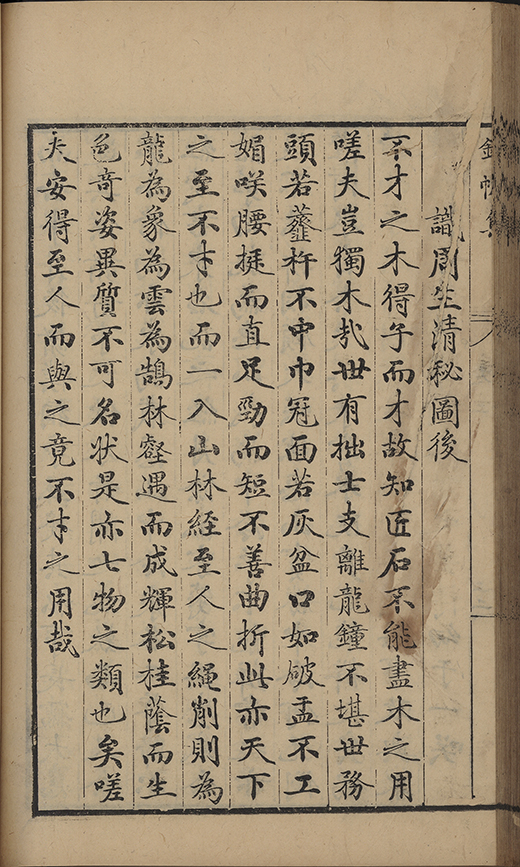 錦帆集
識周生清秘圖後
不才之木得子而才故知匠石不能盡木之用
嗟夫豈獨木哉世有拙士支離龍鐘不堪世務
頭若虀杵不中巾冠面若灰盆口如破盂不工
媚咲腰挺而直足勁而短不善曲折此亦天下
之至不才也而一入山林經至人之繩削則為
龍為象為雲為鵠林壑遇而成輝松桂蔭而生
色奇姿異質不可名状是亦七物之類也矣嗟
夫安得至人而與之竟不才之用哉